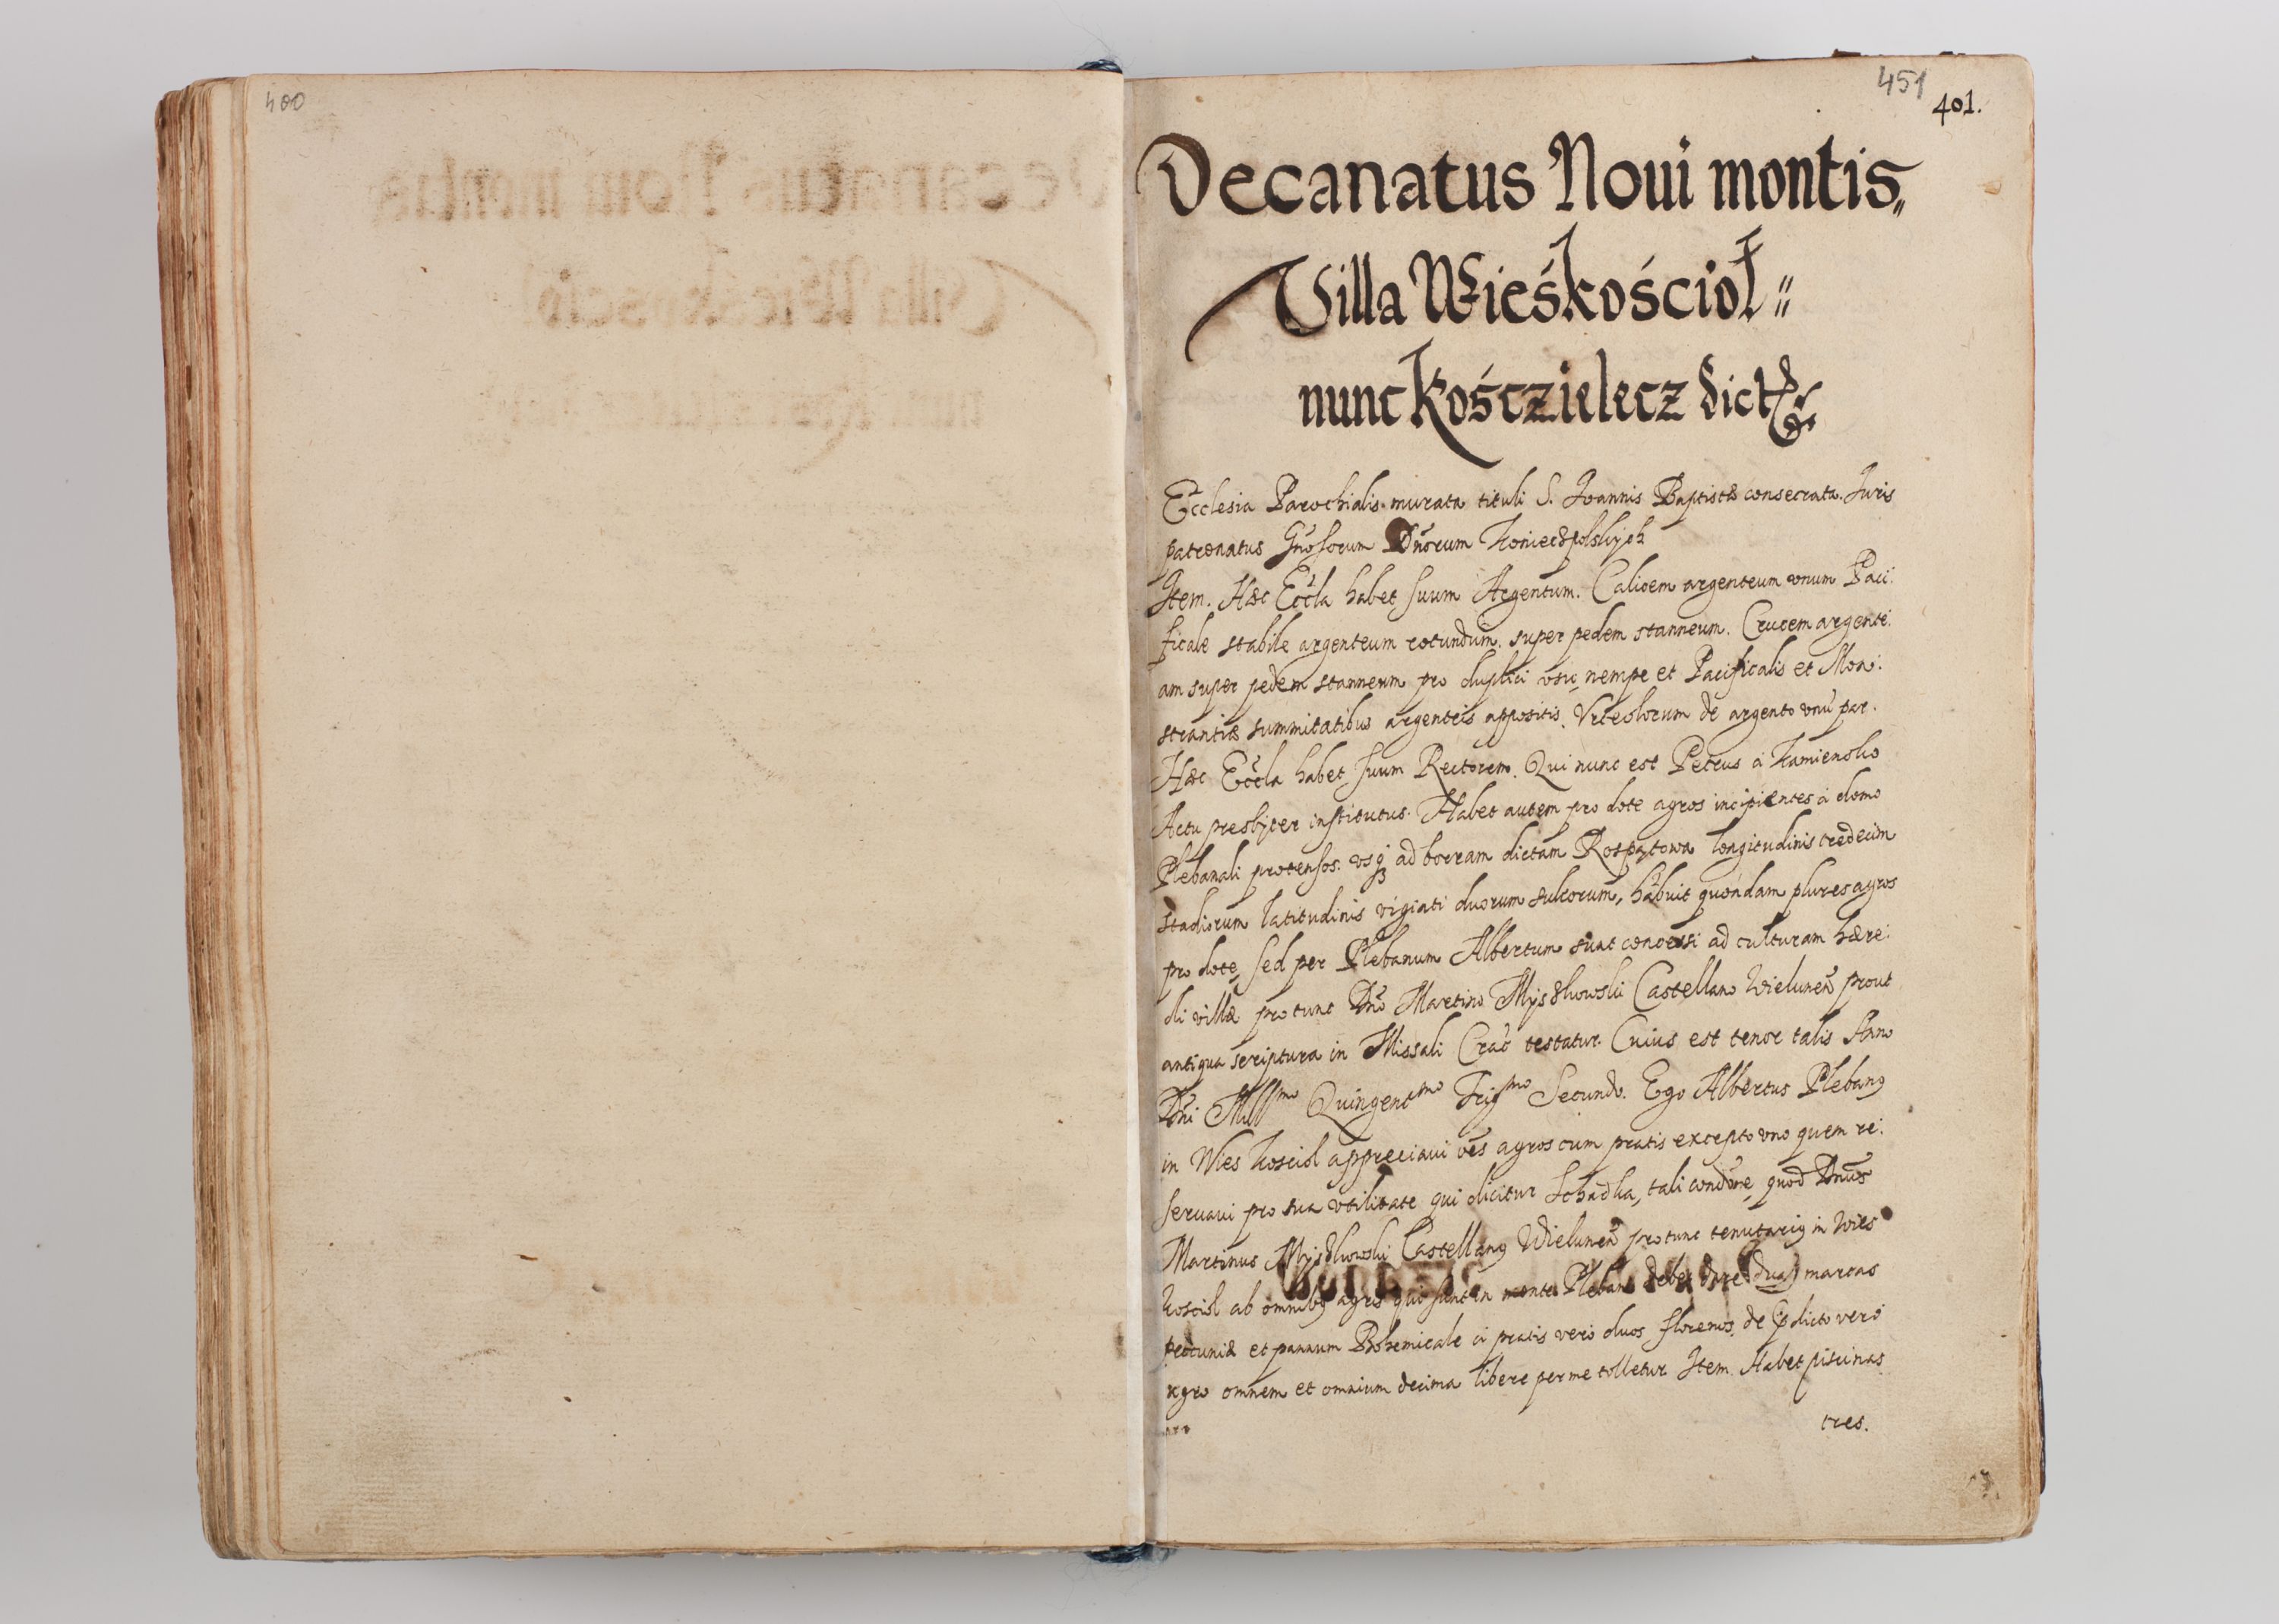 400
451
401.
Decanatus Noui montis„
Villa Wieśkościoł„
nunc Kośczielecz dict
Ecclesia Parochialis murata tituli S. Joannis Baptistæ consecrata. Juris
patronatus Gnõsorum Dnõrum Koniecspolskych
Item. Hæc Eccla habet suum Argentum. Calicem argenteum vnum Paci:
ficale stabile argenteum rotundum. super pedem stanneum. Crucem argente:
am super pedem stanneum pro duplici vsu, nempe et Pacificalis et Mon:
strantiæ summitatibus argenteis appositis. Vrceolorum de argento vnũ par.
Hæc Eccla habet suum Rectorem. Qui nunc est Petrus à Kamiensko
Actu presbyter institutus. Habet autem pro dote agros incipientes à domo
Plebanali protensos. vsq ad borram dictam longitudinis tredecim
stadiorum latitudinis viginti duorum sulcorum, habuit quondam plures agros
pro dote, sed per Plebanum Albertum sunt concessi ad culturam hære:
di villæ pro tunc Dno Martino Myszkowski Castellano Wielunen prout
antiqua scriptura in Missali Crac testatur. Cuius est tenor talis Anno
Dni Mill^mo Quingent^mo Trig^mo Secundo. Ego Albertus Pleban9
in Wies Kosciol appreciaui oẽs agros cum pratis excepto vno quem re:
seruaui pro sua vtilitate qui dicitur tali condõne, quod Dnus
Martinus Myszkowski Castellan9 Wielunen pro tunc tenutari9 in Wies
Kosciol ab omnib9 agris qui sunt in monte Plebano debet dare duas marcas
pecuniæ et pannum Bohemicale à pratis verò duos florenos. de pdicto verò
agro omnem et omnium decima libere per me tolletur Item. Habet piscinas
tres.